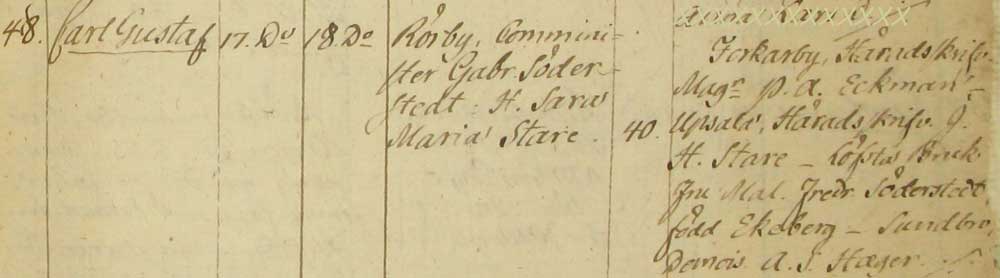 48. Carl Gustaf 17. Do 18. Do Rörby, Commini-
ster Gabr. Söder-
stedt: H. Sara
Maria Stare. 40.
Forkarby, Häradsskrifv.
Magr P. A. Eckman –
Upsala, Häradsskrifv. J.
H. Stare – Löfsta Bruk
Fru Mal. Fredr Söderstedt
född Ekeberg – Sundbro,
Demois. A. S. Hæger.